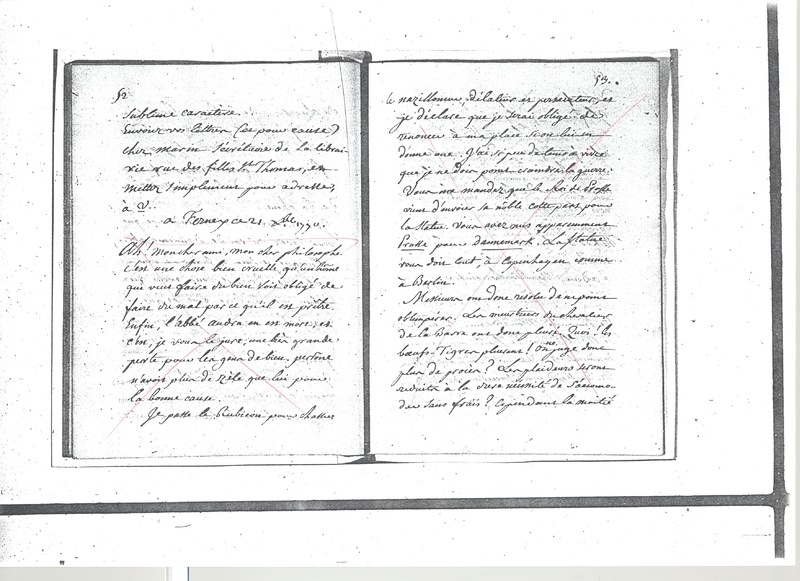 52
sublime caractère.
Envoiez vos lettres (et pour cause)
chez marin secrétaire de la librai-
rie rue des filles St Thomas, et
mettez simplement pour adresse,
à V.
a Ferney ce 21. Xbre 1770.
Ah! mon cher ami, mon cher philosophe
c'est une chose bien cruelle qu'un homme
qui veut faire du bien soit obligé de
faire du mal parce qu'il est prêtre.
Enfin, l'abbé audra en est mort, et
c'est, je vous le jure, une très grande
perte pour les gens de bien. personne
n'avoit plus de zèle que lui pour
la bonne cause.
Je passe le Rubicon pour chasser
53.
le nazillonneur, délateur et persécuteur, et
je déclare que je serai obligé de
renoncer à ma place si on lui en
donne une. J'ai si peu de tems à vivre
que je ne dois point craindre la guerre.
Vous me mandez que le Roi de Prusse
vient d'envoier sa noble cotte part pour
la statue. Vous avez mis apparemment
Prusse pour Dannemark. La statue
vous doit tout, à Copenhagen comme
à Berlin.
Messieurs ont donc resolu de ne point
obtempérer. Les meurtriers du chevalier
de la Barre ont donc pleuré. Quoi! les
bœufs-Tigres pleurent! On ne juge donc
plus de procès? Les plaideurs seront
reduits à la dure nécessité de s'accomo-
der sans frais? Cependant la moitié